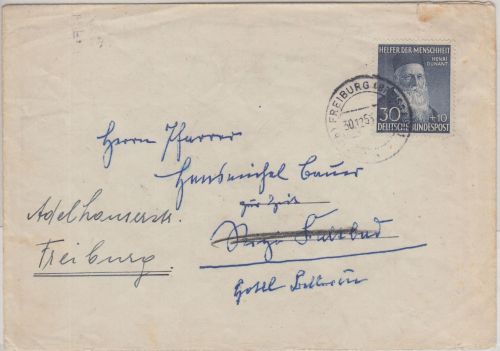 HELFER DER MENSCHHEIT
HENRI
DUNANT
30 +10
DEUTSCHE BUNDESPOST
FREIBURG
30.12.5
Herrn Pfarrer
Hansmichel Bauer
zur Zeit
Kaltbad
Hotel Bellevue
Adelhauserstr.
Freiburg.